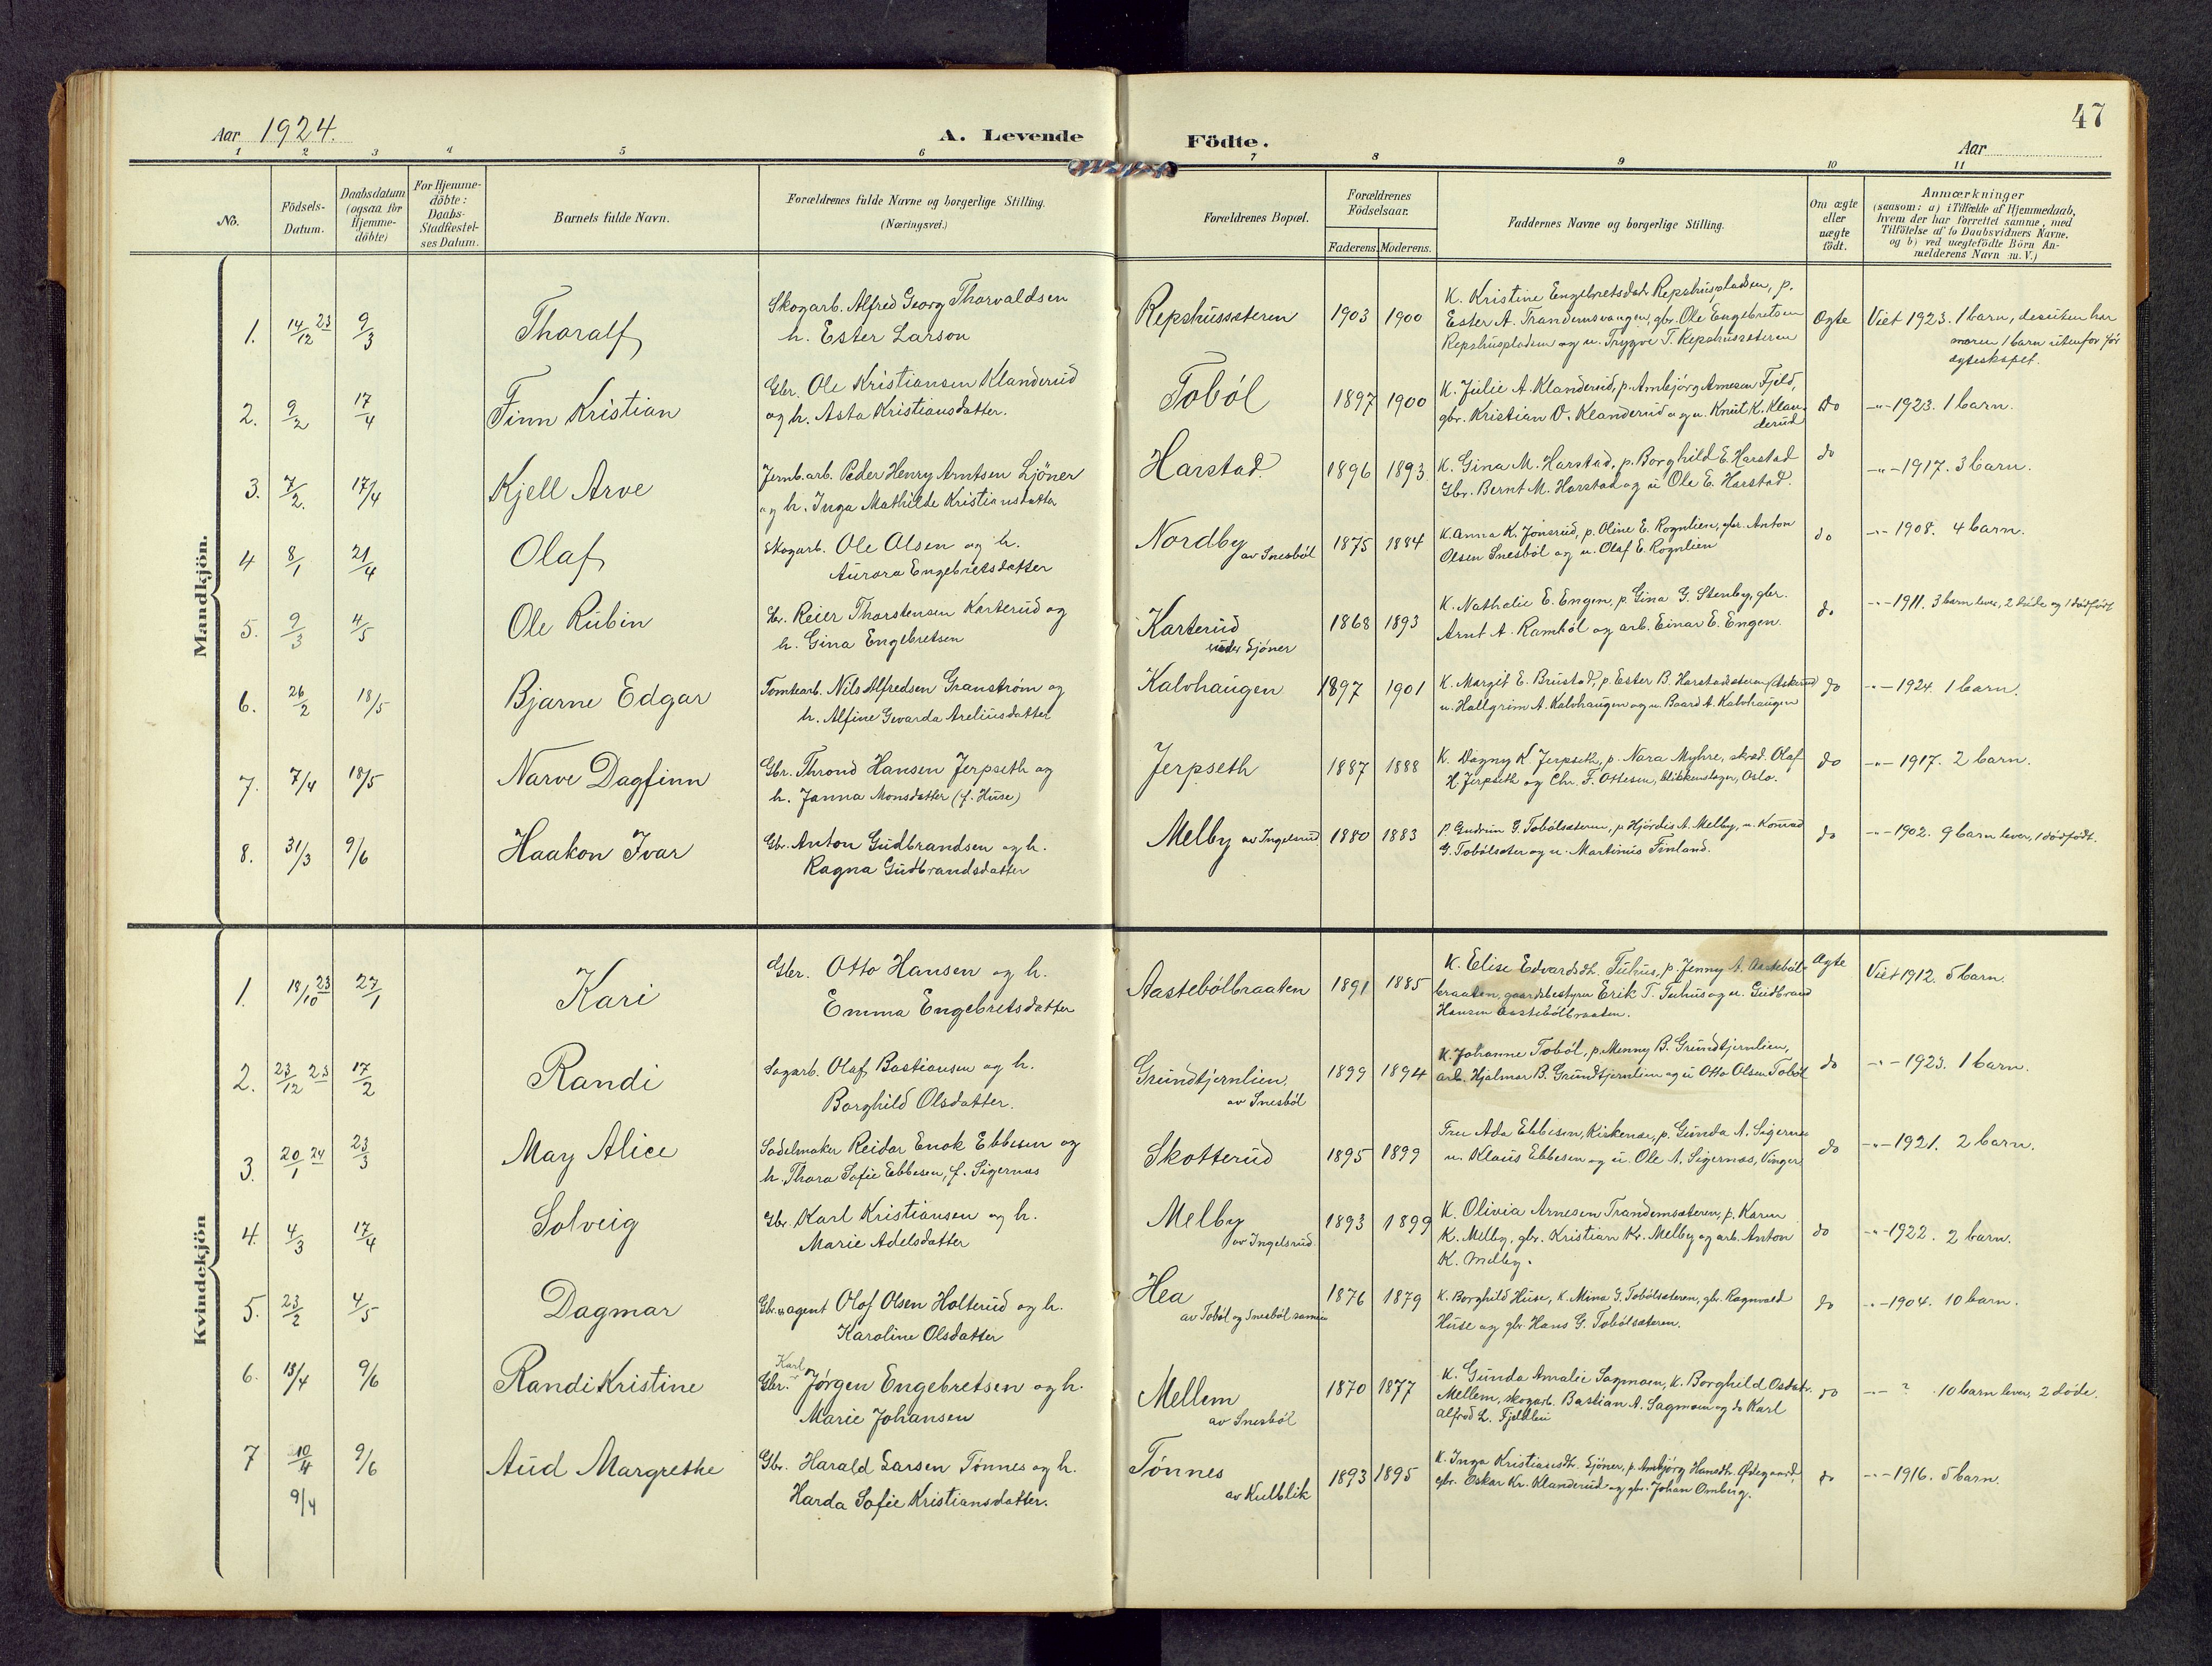 47
Aar 1924.
A. Levende Födte.
Aar
1 2 3 4 5 6 7 8 9 10 11
No.
Födsels-
Datum.
Daabsdatum
(ogsaa for
Hjemme-
döbte)
For Hjemme-
döbte:
Daabs-
Stadfæstel-
ses Datum.
Barnets fulde Navn.
Forældrenes fulde Navne og borgerlige Stilling.
(Næringsvei.)
Forældrenes Bopæl.
Forældrenes
Födselsaar.
Faderens. Moderens.
Faddernes Navne og borgerlige Stilling.
Om ægte
eller
uægte
födt.
Anmærkninger
(saasom: a) i Tilfælde af Hjemmedaab,
hvem der har forrettet samme, med
Tilföielse af to Daabsvidners Navne.
og b) ved uægtefödte Börn An-
melderens Navn m. V.)
Mandkjön.
1. 14/12 23 9/3 Thoralf
Skogarb. Alfred Georg Thorvaldsen
h. Ester Larson
Repshussæteren 1903 1900
K. Kristine Engebretsdatr Repshuspladsen, p.
Ester A. Trandemsvangen, gbr. Ole Engebretsen
Repshuspladsen og u. Trygve T. Repshussæteren
Ægte
Viet 1923. 1 barn, desuten har
moren 1 barn utenfor før
egteskapet.
2. 9/2 17/4 Finn Kristian
Gbr. Ole Kristiansen Klanderud
og h. Asta Kristiansdatter.
Toböl 1897 1900
K. Julie A. Klanderud, p. Ambjörg Arnesen Fjeld,
gbr. Kristian O. Klanderud og u. Knut K. Klan-
derud
do
-"- 1923. 1 barn.
3. 7/2. 17/4 Kjell Arve
Jernb.arb. Peder Henry Arntsen Ljöner
og h. Inga Mathilde Kristiansdatter
Harstad 1896 1893
K. Gina M. Harstad, p. Borghild E. Harstad
Gbr. Bernt M. Harstad og u Ole E. Harstad.
do
-"- 1917. 3 barn.
4 8/1 21/4 Olaf
Skogarb. Ole Olsen og h.
Aurora Engebretsdatter
Nordby
av Snesböl
1875 1884
K. Anna K. Jonsrud, p. Oline E. Rognlien, gbr. Anton
Olsen Snesböl og u. Olaf E. Rognlien
do
-"- 1908. 4 barn.
5. 9/3 4/5 Ole Rubin
Gbr. Reier Thorstensen Karterud og
h. Gina Engebretsen
Karterud
under Ljöner
1868 1893
K. Nathalie E. Engen, p. Gina G. Stenby, gbr.
Arnt A. Ramböl og arb. Einar E. Engen.
do
-"- 1911. 3 barn lever, 2 døde og 1 dødfødt
6. 26/2 18/5 Bjarne Edgar
Tomtearb. Nils Alfredsen Granström og
h. Alfine Gevarda Areliusdatter
Kalvhaugen 1897 1901
K. Margit E. Brustad, p. Ester B. Harstadsæteren (Askerud)
u. Hallgrim A. Kalvhaugen og u. Baard A. Kalvhaugen
do
-"- 1924. 1 barn.
7. 7/4 18/5 Narve Dagfinn
Gbr. Thrond Hansen Jerpseth og
h. Janna Monsdatter (f. Huse)
Jerpseth 1887 1888
K. Dagny K. Jerpseth, p. Nara Myhre, skräd. Olaf
H. Jerpseth og Chr. F. Ottesen, blikkenslager, Oslo.
do
-"- 1917. 2 barn.
8. 31/3 9/6 Haakon Ivar
Gbr. Anton Gudbrandsen og h.
Ragna Gudbrandsdatter
Melby av Ingelsrud 1880 1883
P. Gudrun G. Tobölsæteren, p Hjördis A. Melby, u. Konrad
G. Tobölsæter og u. Martinus Finland.
do
-"- 1902. 9 barn lever, 1 dødfødt.
Kvindekjön
1. 18/10 23 27/1 Kari
Gbr. Otto Hansen og h.
Emma Engebretsdatter
Aastebölbraaten 1891 1885
K. Elise Edvardsdtr. Tuhus, p. Jenny A. Aasteböl-
braaten, gaardsbestyrer Erik T. Tuhus og u. Gudbrand
Hansen Aastebölbraaten.
Ægte
Viet 1912. 5 barn.
2. 23/12 23 17/2 Randi
Sagarb. Olaf Bastiansen og h.
Borghild Olsdatter.
Grundtjernlien,
av Snesböl
1899 1894
K. Johanne Toböl, p. Menny B. Grundtjernlien,
arb. Hjalmar B. Grundtjernlien og u Otto Olsen Toböl
do
-"- 1923. 1 barn.
3. 20/1 24 23/3 May Alice
Sadelmaker Reidar Enok Ebbesen og
h. Thora Sofie Ebbesen, f. Sigernæs
Skotterud 1895 1899
Fru Ada Ebbesen, Kirkenær, p. Gunda A. Sigernes
u. Klaus Ebbesen og u. Ole A. Sigernæs, Vinger
do
-"- 1921. 2 barn.
4. 4/3 17/4 Solveig
Gbr. Karl Kristiansen og h.
Marie Adelsdatter
Melby
av Ingelsrud
1893 1899
K. Olivia Arnesen Trandemsæteren, p. Karen
K. Melby, gbr. Kristian Kr. Melby og arb. Anton
K. Melby.
do
-"- 1922. 2 barn.
5. 23/2 4/5 Dagmar
Gbr. og agent Olof Olsen Holterud og h.
Karoline Olsdatter
Hea
av Toböl og Snesböl sameie
1876 1879
K. Borghild Huse, K. Mina G. Tobölsæteren, gbr. Ragnvald
Huse og gbr. Hans G. Tobölsæteren.
do
-"- 1904. 10 barn.
6. 13/4 9/6 Randi Kristine
Karl
Gbr. Jørgen Engebretsen og h.
Marie Johansen
Mellem
av Snesböl
1870 1877
K. Gunda Amalie Sagmoen, K. Borghild Osdatr.
Mellem, skogarb. Bastian A. Sagmoen og do Karl
Alfred L. Fjeldlien
do
-"- ? 10 barn lever, 2 døde.
7 10/4 9/6 Aud Margrethe
9/4
Gbr. Harald Larsen Tönnes og h.
Harda Sofie Kristiansdatter.
Tönnes
av Kulblik
1893 1895
K. Inga Kristiansdtr. Ljöner, p. Ambjörg Hansdtr. Ødegaard,
gbr. Oskar Kr. Klanderud og gbr. Johan Omberg.
do
-"- 1916. 5 barn.